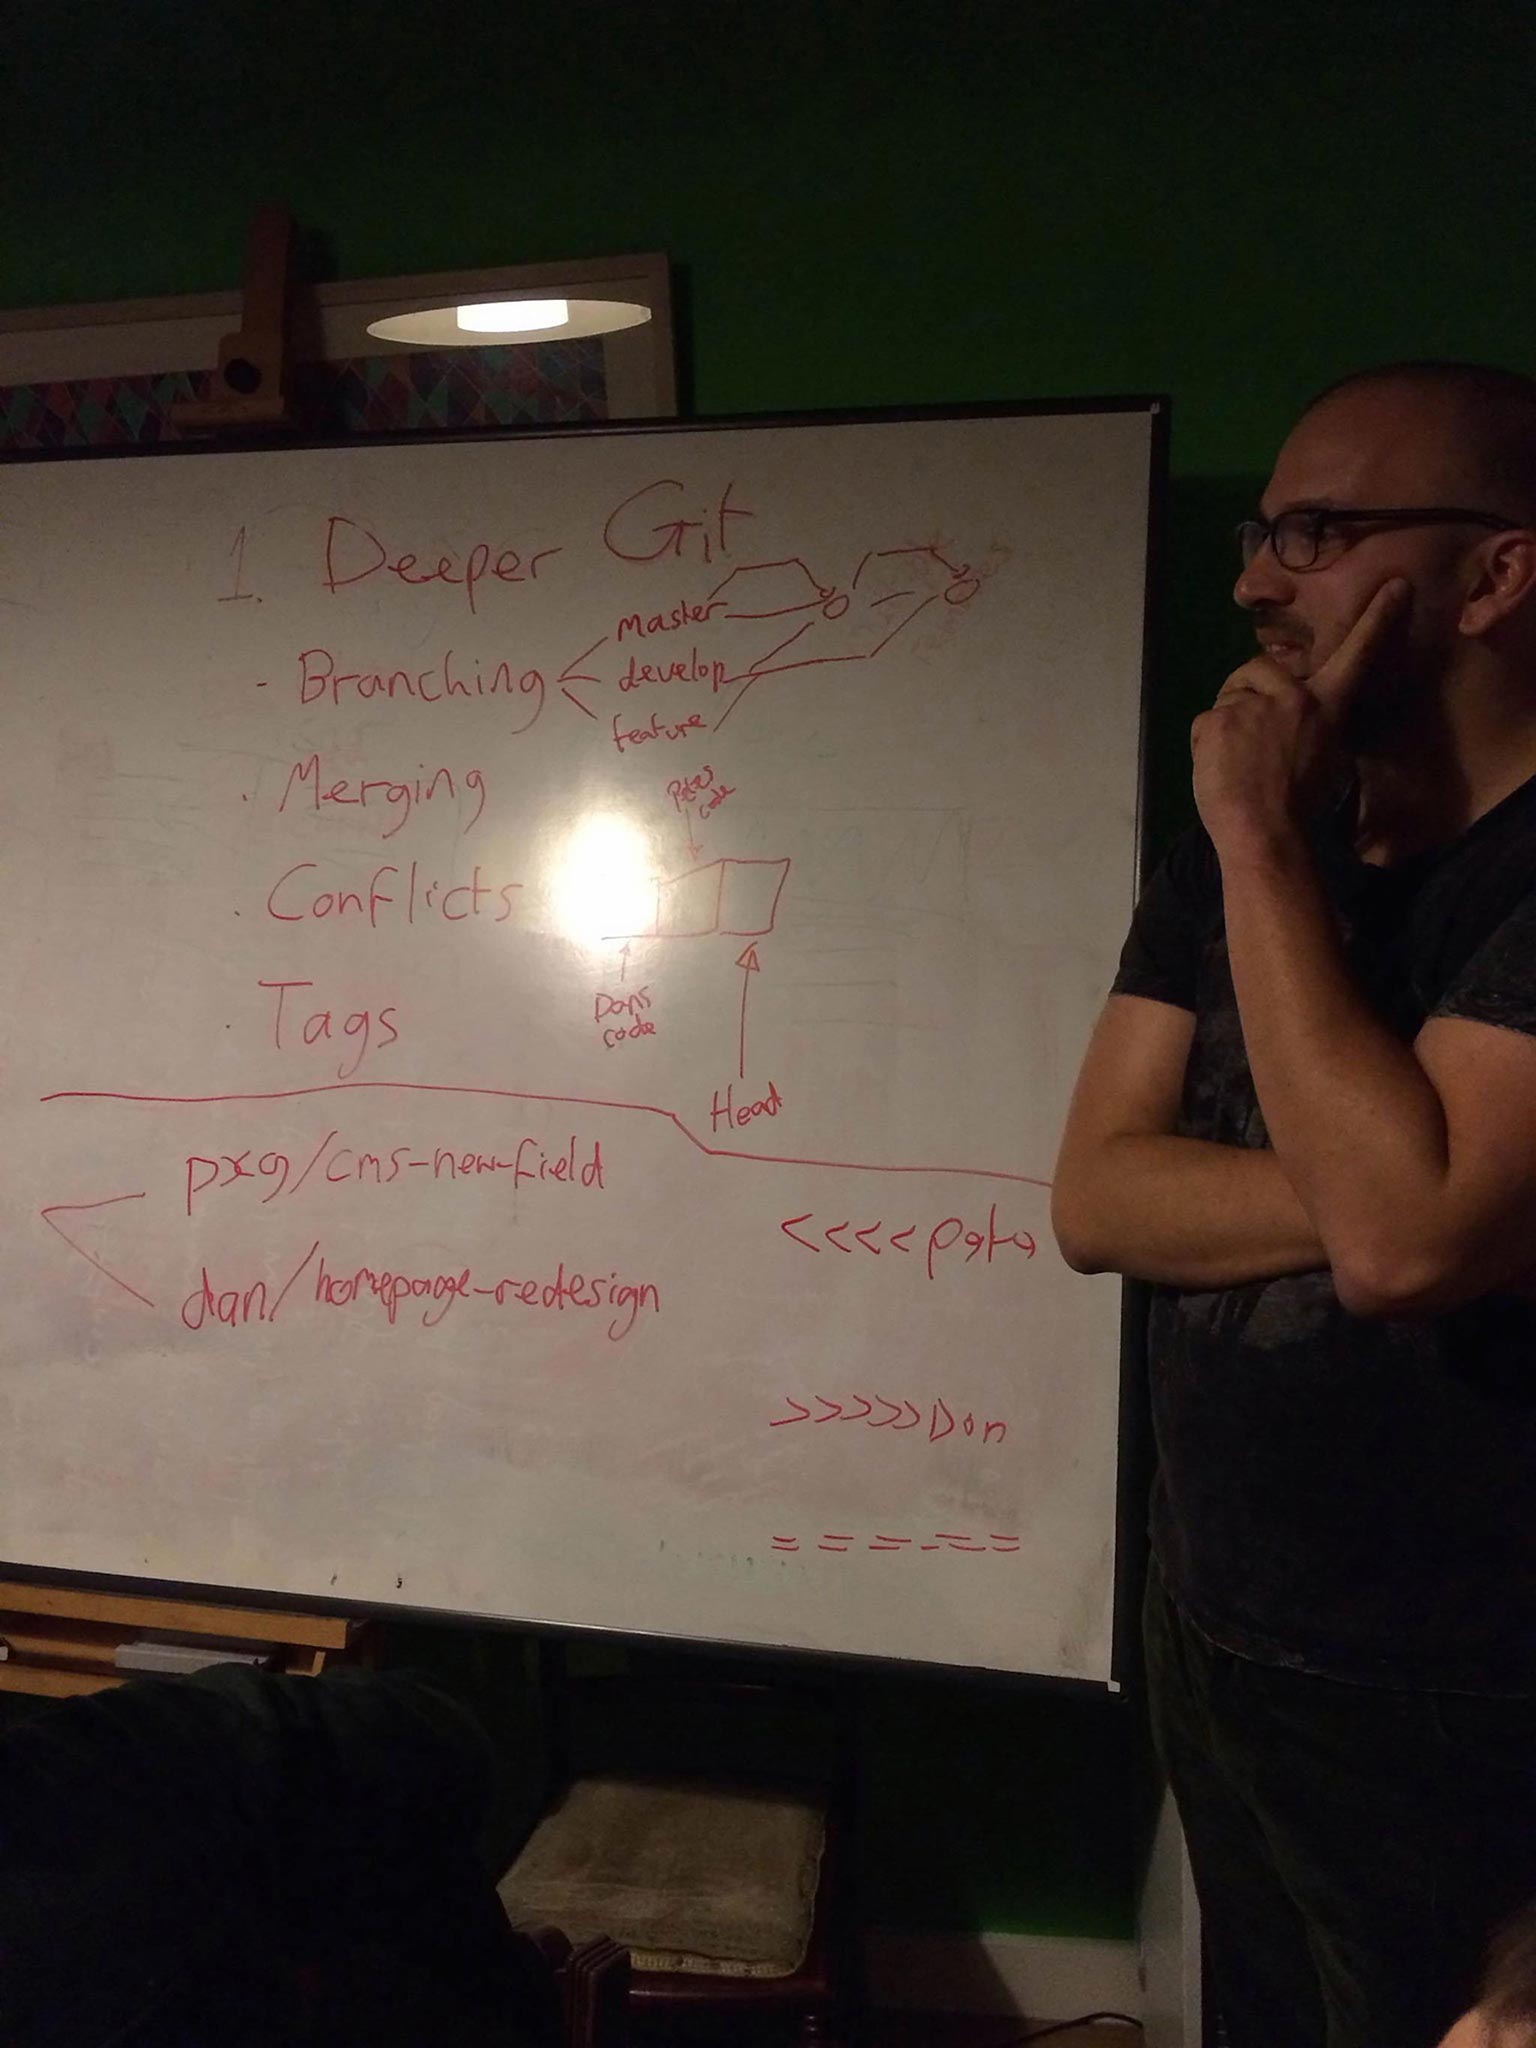 1. Deeper Git
- Branching
master
develop
feature
· Merging
Petes
code
· Conflicts
Dans
code
· Tags
Head
pxg/cms-new-field
dan/homepage-redesign
<<<< pete
>>>>> Dan
= = = - = =